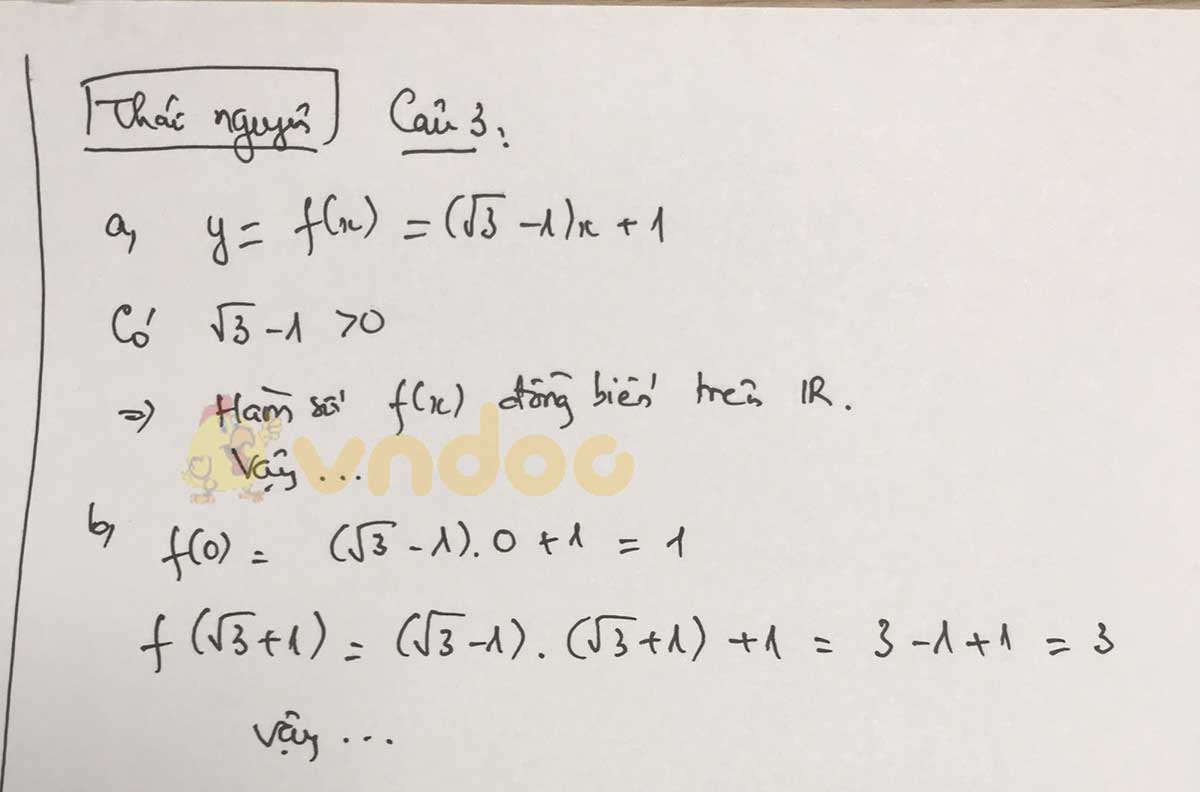 Thái nguyên Câu 3:
a, y = f(x) = (√3 -1)x + 1
Có √3 -1 >0
=> Hàm số f(x) đồng biến trên IR.
Vậy ...
vndoc
b, f(0) = (√3 -1). 0 +1 = 1
f (√3+1) = (√3-1). (√3+1) +1 = 3 -1+1 = 3
Vậy ...